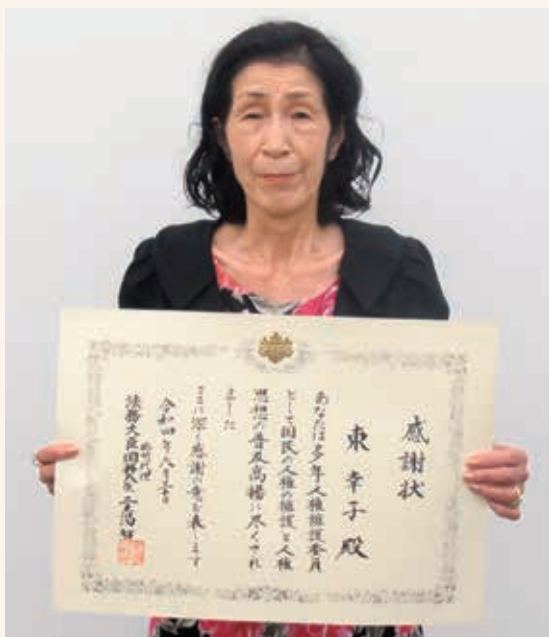 感謝状
東 幸子 殿
あなたは多年人権擁護委員
として国民の人権の擁護と人権
思想の普及高揚に尽くされ
ました
ここに深く感謝の意を表します
令和四年
法務大臣